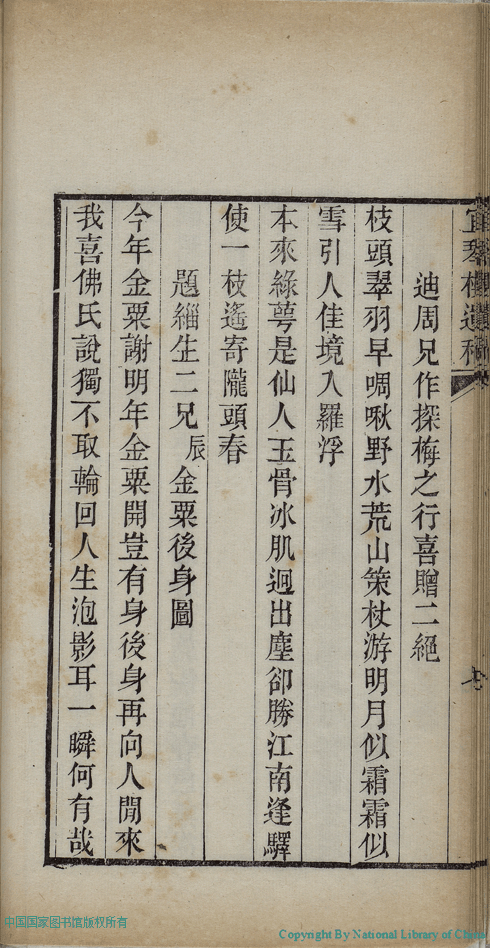 迪周兄作探梅之行喜贈二絕
枝頭翠羽早啁啾野水荒山策杖游明月似霜霜似
雪引人佳境入羅浮
本來綠萼是仙人玉骨冰肌迥出塵卻勝江南逢驛
使一枝遙寄隴頭春
題緇生二兄辰金粟後身圖
今年金粟謝明年金粟開豈有身後身再向人閒來
我喜佛氏說獨不取輪回人生泡影耳一瞬何有哉
中国国家图书馆版权所有
Copyright By National Library of China